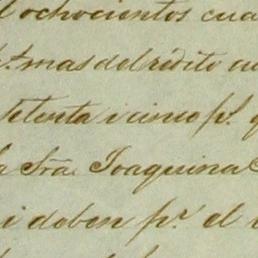 ochocientos cua
pr. mas del rédito
setenta i cinco ps.
Sra. Joaquina
i deben pr. el